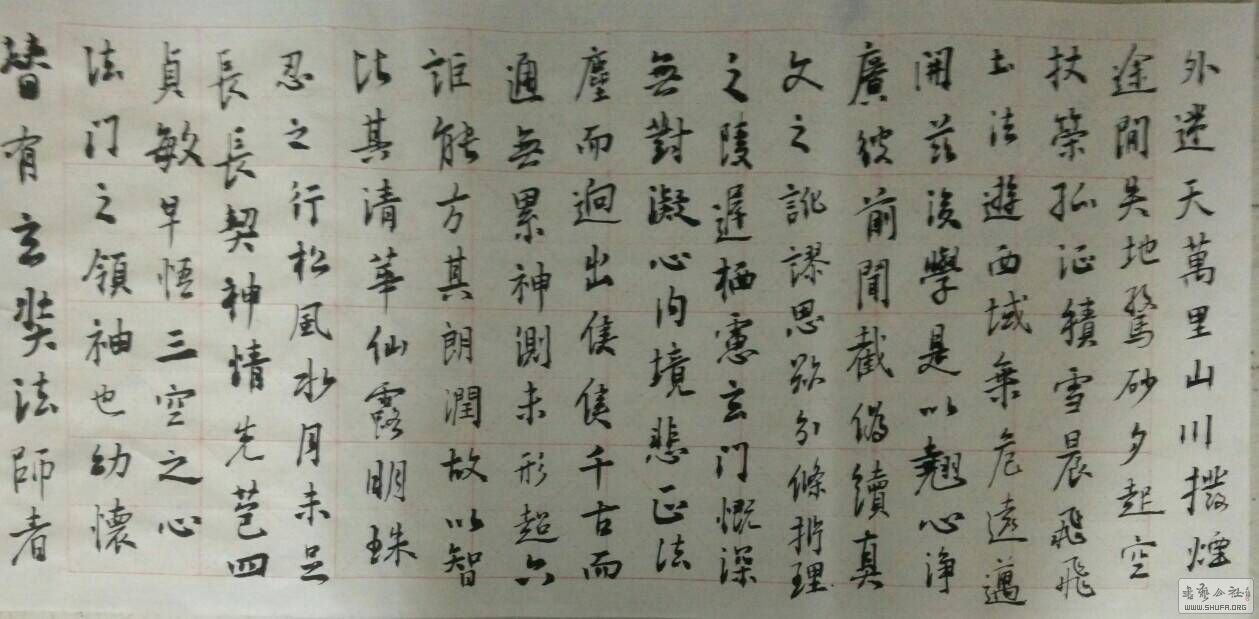 替有玄奘法師者
法门之領袖也幼懷
貞敏早悟三空之心
長長契神情先苞四
忍之行松風水月未足
比其清華仙露明珠
詎能方其朗潤故以智
通無累神測未形超六
塵而迥出隻隻千古而
無對凝心内境悲正法
之陵遲栖慮玄门慨深
文之訛謬思欲分條析理
廣彼前聞截偽續真
開茲後學是以翹心淨
土法遊西域乘危遠邁
杖策孤征積雪晨飛飛
途閒失地驚砂夕起空
外迷天萬里山川撥煙
书艺公社
WWW.SHUFA.ORG